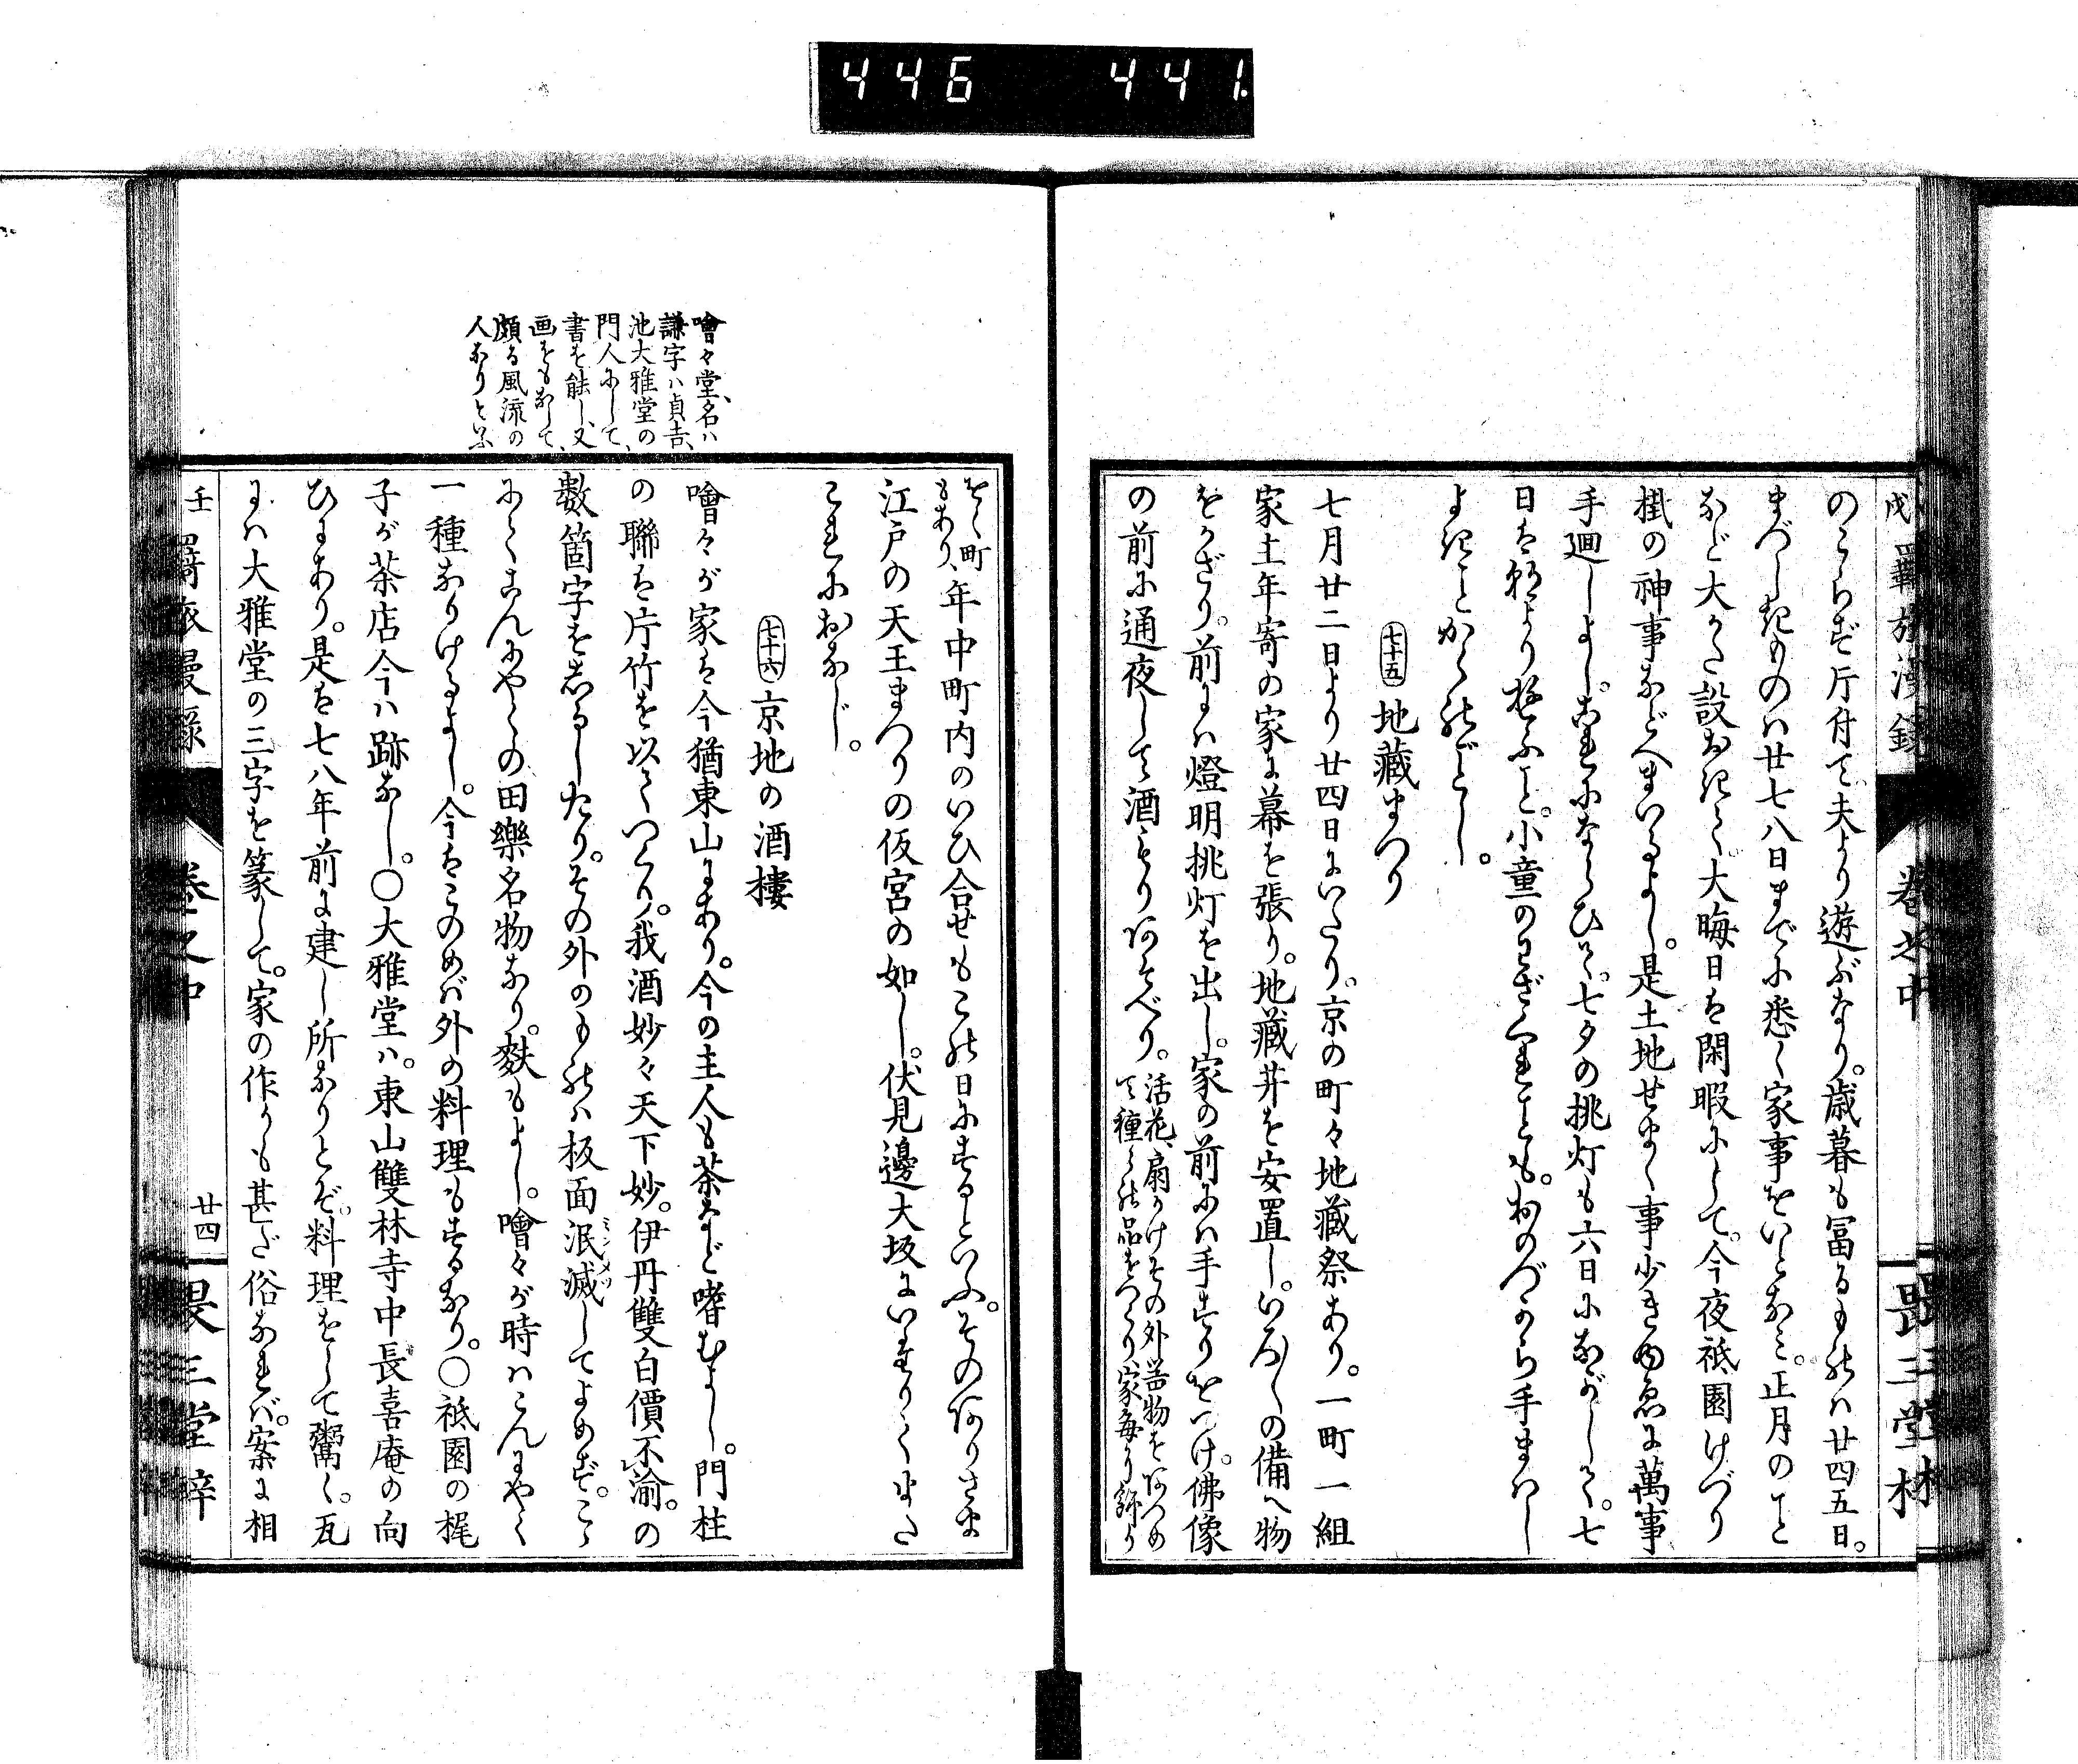 446 441.
のこらず片付て夫より遊ぶなり。歳暮も冨るものハ廿四五日。
まづしきものハ廿七八日までに悉く家事をいとなミ。正月のこと
など大かた設おきて大晦日は閑暇にして。今夜祇園けづり
掛の神事などへまいるよし。是土地せまく事少きゆゑに萬事
手廻しよし。これにならひて。七夕の挑灯も六日にながして。七
日は朝より遊ふこと。小童のわざくれとも。おのづから手まはし
よきことかくのごとし。
七十五 地藏まつり
七月廿二日より廿四日にいたり。京の町々地藏祭あり。一町一組
家土年寄の家に幕を張り。地藏井を安置し。いろ〱の備へ物
をかざり。前にハ燈明挑灯を出し。家の前にハ手すりをつけ。佛像
の前に通夜して酒もりあそべり。
活花、扇かけその外器物をあつめ
て種々の品をつくり、家毎に飾る
をく町
もあり、
年中町内のいひ合せもこの日にするといふ。そのありさま
江戸の天王まつりの仮宮の如し。伏見邊大坂にいたりてまた
これにおなじ。
七十六 京地の酒樓
噲々が家は今猶東山にあり。今の主人も茶など嗜むよし。門柱
の聯は片竹を以てつくり。我酒妙々天下妙。伊丹雙白價不渝。の
數箇字をしるしたり。その外のものハ板面泯滅してよめず。こゝ
にてこんにやくの田樂名物なり。麩もよし。噲々が時ハこんにやく
一種なりけるよし。今はこのめば外の料理もするなり。○祇園の梶
子が茶店今ハ跡なし。○大雅堂ハ。東山雙林寺中長喜庵の向
ひにあり。是は七八年前に建し所なりとぞ。料理をして鬻く。瓦
にハ大雅堂の三字を篆して。家の作りも甚だ俗なれバ。案に相
噲々堂、名ハ
謙字ハ貞吉、
池大雅堂の
門人にして、
書を能し、又
画をもなして、
頗る風流の
人なりといふ
戌 羇旅漫録 巻之中 畏三堂梓
壬 羇旅漫録 巻之中 廿四 畏三堂梓